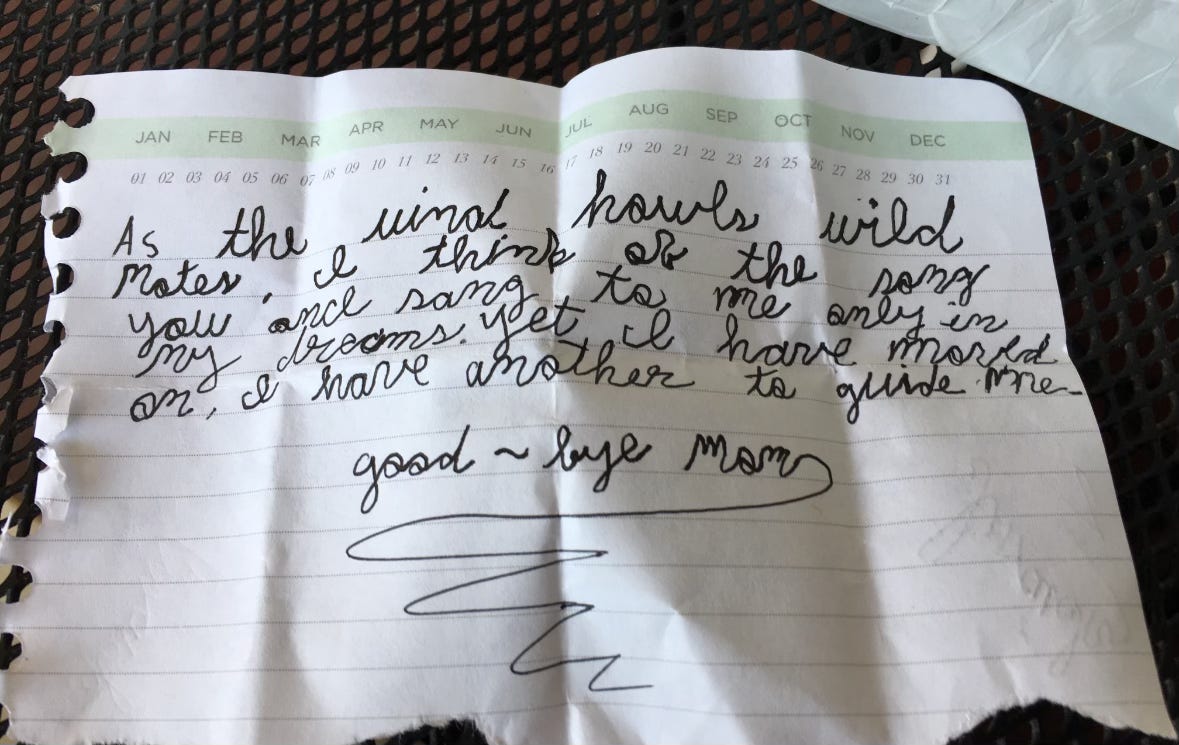 JAN FEB MAR APR MAY JUN JUL AUG SEP OCT NOV DEC
01 02 03 04 05 06 07 08 09 10 11 12 13 14 15 16 17 18 19 20 21 22 23 24 25 26 27 28 29 30 31
As the wind howls wild
notes, I think of the song
you once sang to me only in
my dreams. Yet I have moved
on, I have another to guide me-
good ~ bye Mom